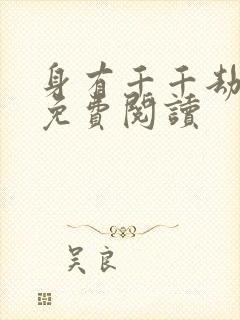 身有千千劫
免費閱讀
吴良